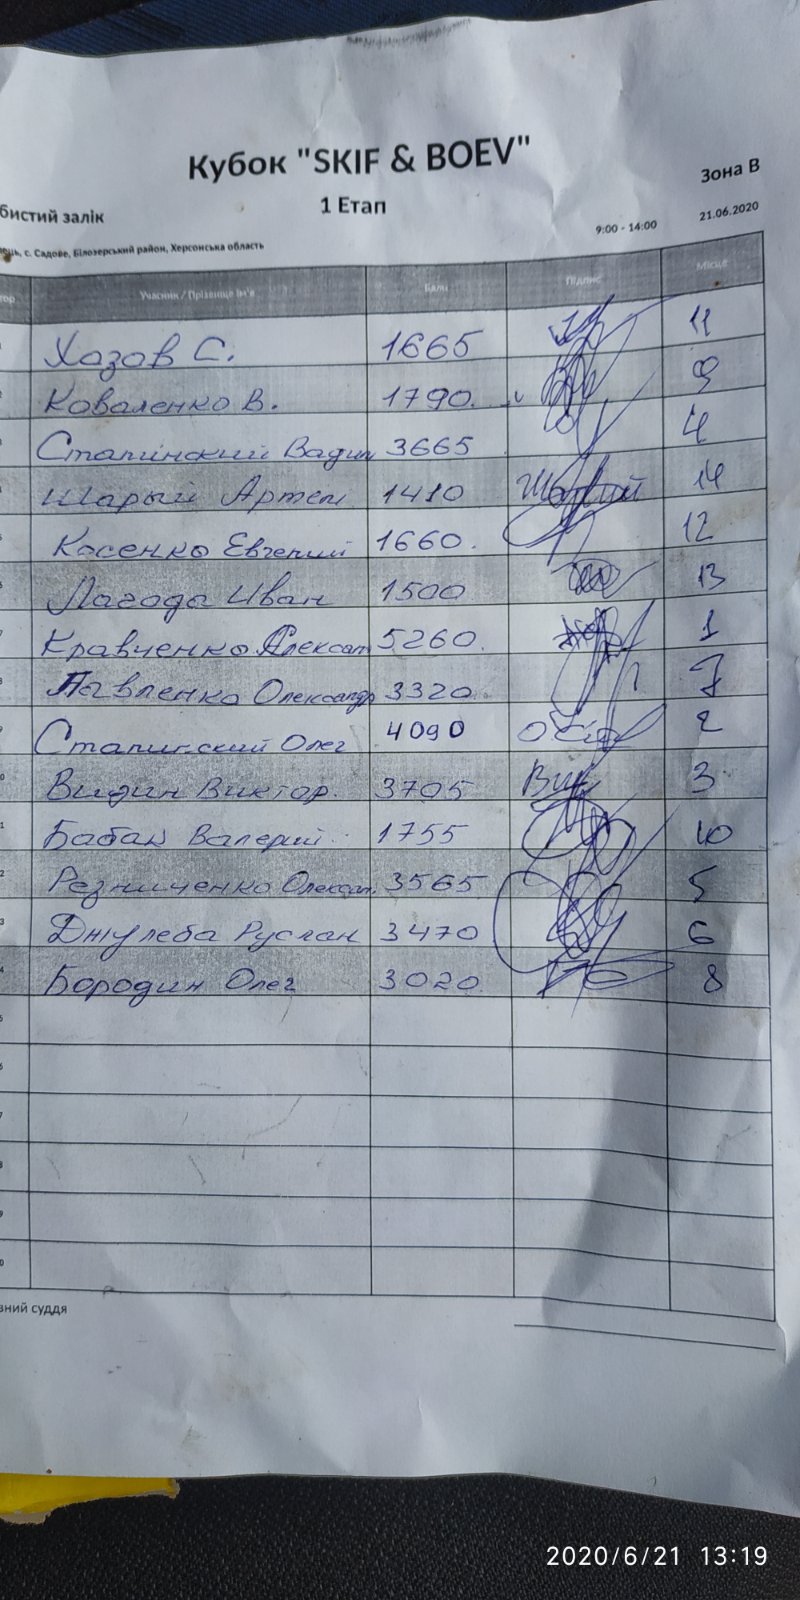 Кубок "SKIF & BOEV"
Зона В
бистий залік
1 Етап
9:00 - 14:00
21.06.2020
с. Садове, Білозерський район, Херсонська область
Учасник / Прізвище Ім'я Бали Підпис Місце
Хазов С. 1665 11
Коваленко В. 1790. 9
Сталинский Вадим 3665 4
Шарый Артем 1410 Шарый 14
Косенко Евгений 1660. 12
Лагода Иван 1500 13
Кравченко Алексан 5260. 1
Павленко Олександр 3320 7
Сталинский Олег 4090 2
Видин Виктор. 3705 3
Бабак Валерий 1755 10
Резниченко Олексан. 3565 5
Джулеба Руслан 3470 6
Бородин Олег 3020 8
вний суддя
2020/6/21 13:19